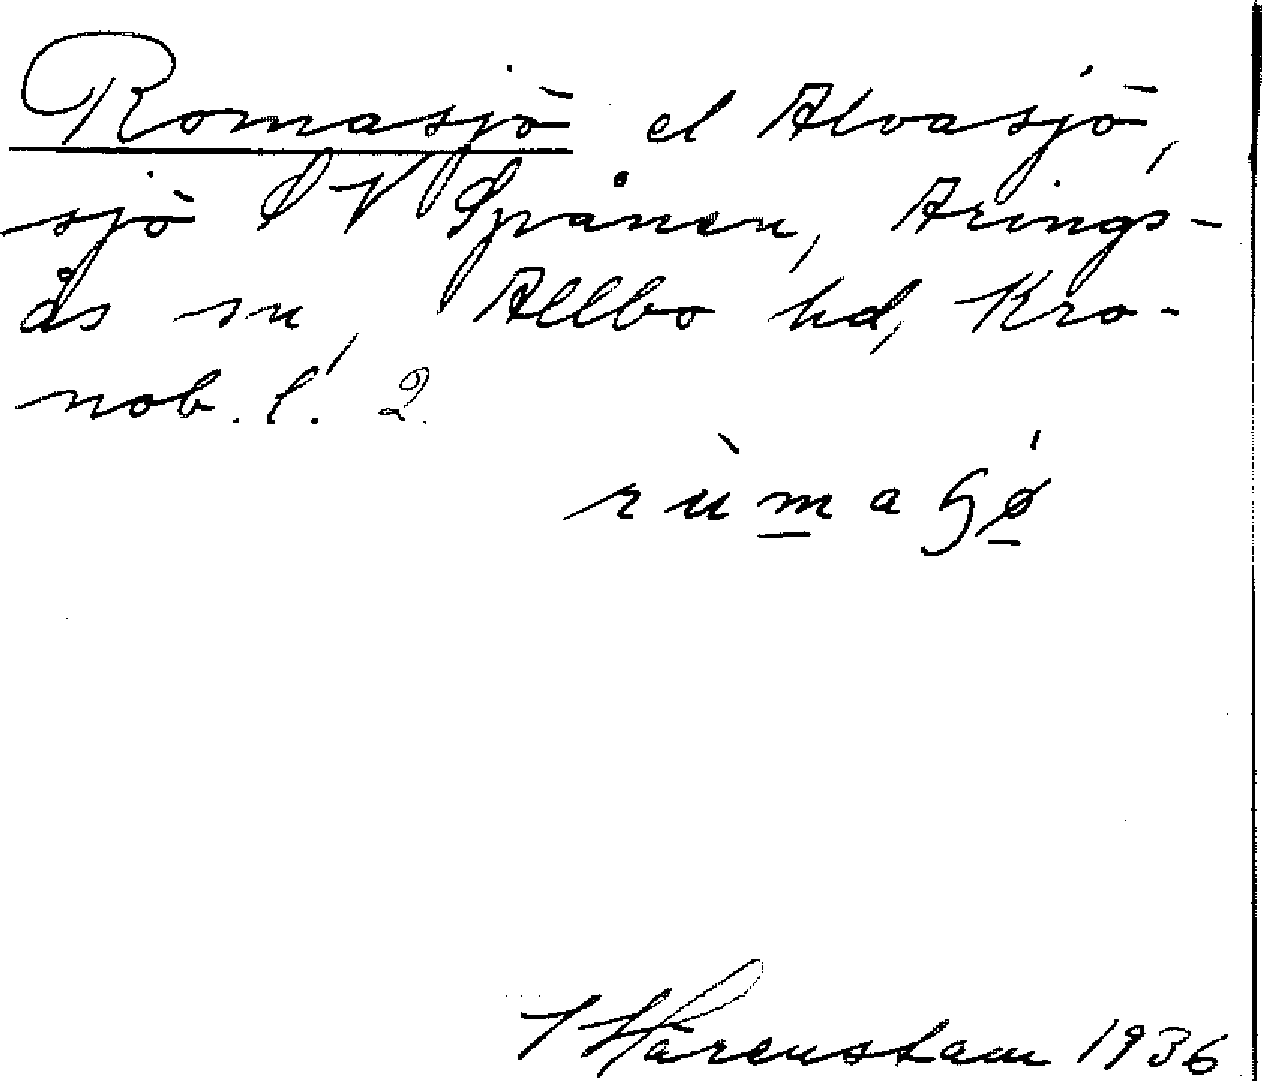 Romasjö el Alvasjö,
sjö SV Spånen, Arings-
ås sn, Allbo hd, Kro-
nob. l. 2.
Härenstam 1936